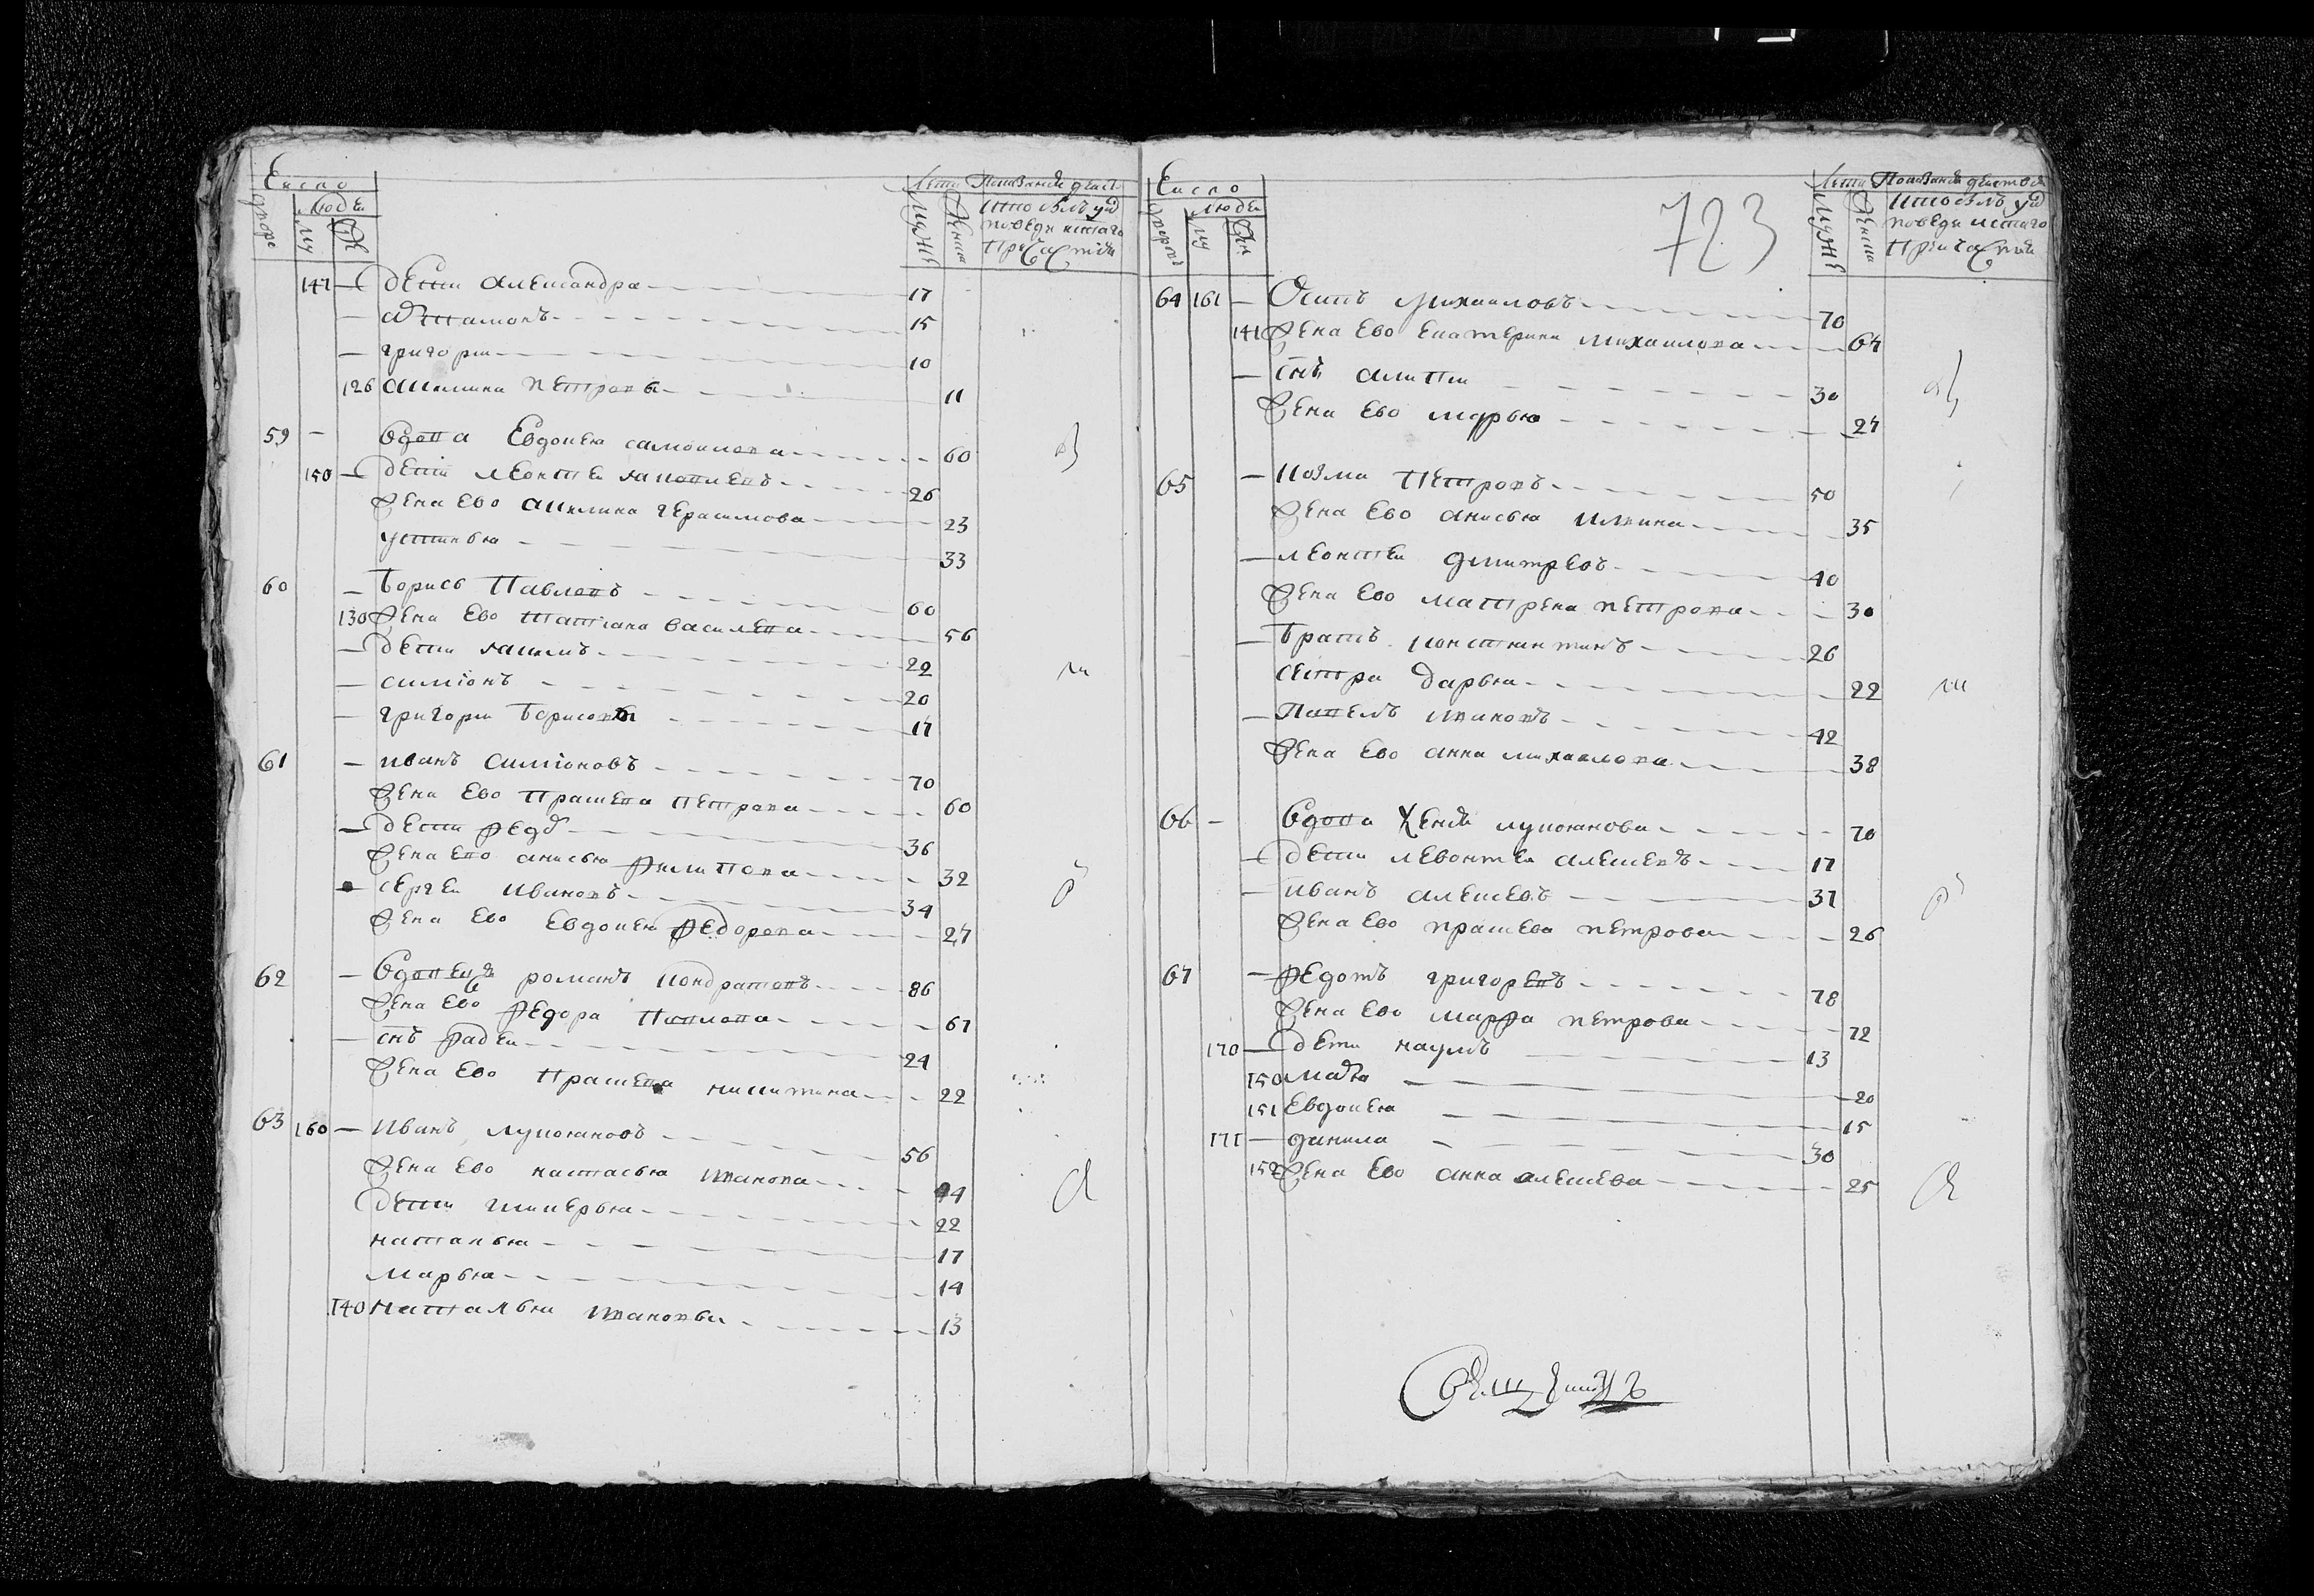 Число
Людеи
Лета
Показание действ
дворов
му
же
муже
женска
кто был у и
поведи и стаго
Причастия
147 — дети александра 17
— артамонъ 15
— григори 10
126 акилина петровы 11
59 — вдова Евдокея самоилова 60
150 — дети леонтеи яковлевъ 26
жена Ево акилина герасимова 23
устинья 33
60 — борисъ Павловъ 60
130 жена Ево татiана василева 56
— дети якимъ 22
— симiонъ 20
— григори борисовы 17
61 — иванъ симiоновъ 70
жена Ево Прасковя Петрова 60
— дети федоръ 36
жена ево анисья филипова 32
— сергеи ивановъ 34
жена Ево Евдокея федорова 27
62 — вдовецъ романъ кондратовъ 86
жена Ево федора Павлова 67
— снъ фадеи 24
жена Ево Праскева никитина 22
63 160 — иванъ лукояновъ 56
жена Ево настасья иванова 44
дети гликерья 22
наталья 17
Марья 14
140 наталья ивановы 13
Число
Людеи
Лета
Показание действа
дворовъ
му
жен
муже
женска
кто былъ у и
поведи и стаго
Причастия
723
64 161 — Осипъ михаиловъ 70
141 жена Ево Екатерина михаилова 64
— снъ алипи 30
жена Ево марья 27
65 — козма Петровъ 50
жена Ево анисья илина 35
— леонтеи дмитревъ 40
жена Ево матрена петрова 30
— братъ констянтинъ 26
сестра дарья 22
— Павелъ ивановъ 42
жена Ево анна михаилова 38
66 — вдова Ксения лукоянова 70
— дети левонтеи алексевъ 17
— иванъ алексевъ 37
жена Ево праскева петрова 26
67 — федотъ григоревъ 78
жена Ево марфа петрова 72
170 — дети наумъ 13
150 мавра 20
151 Евдокея 15
171 — данила 30
152 жена Ево анна алексева 25